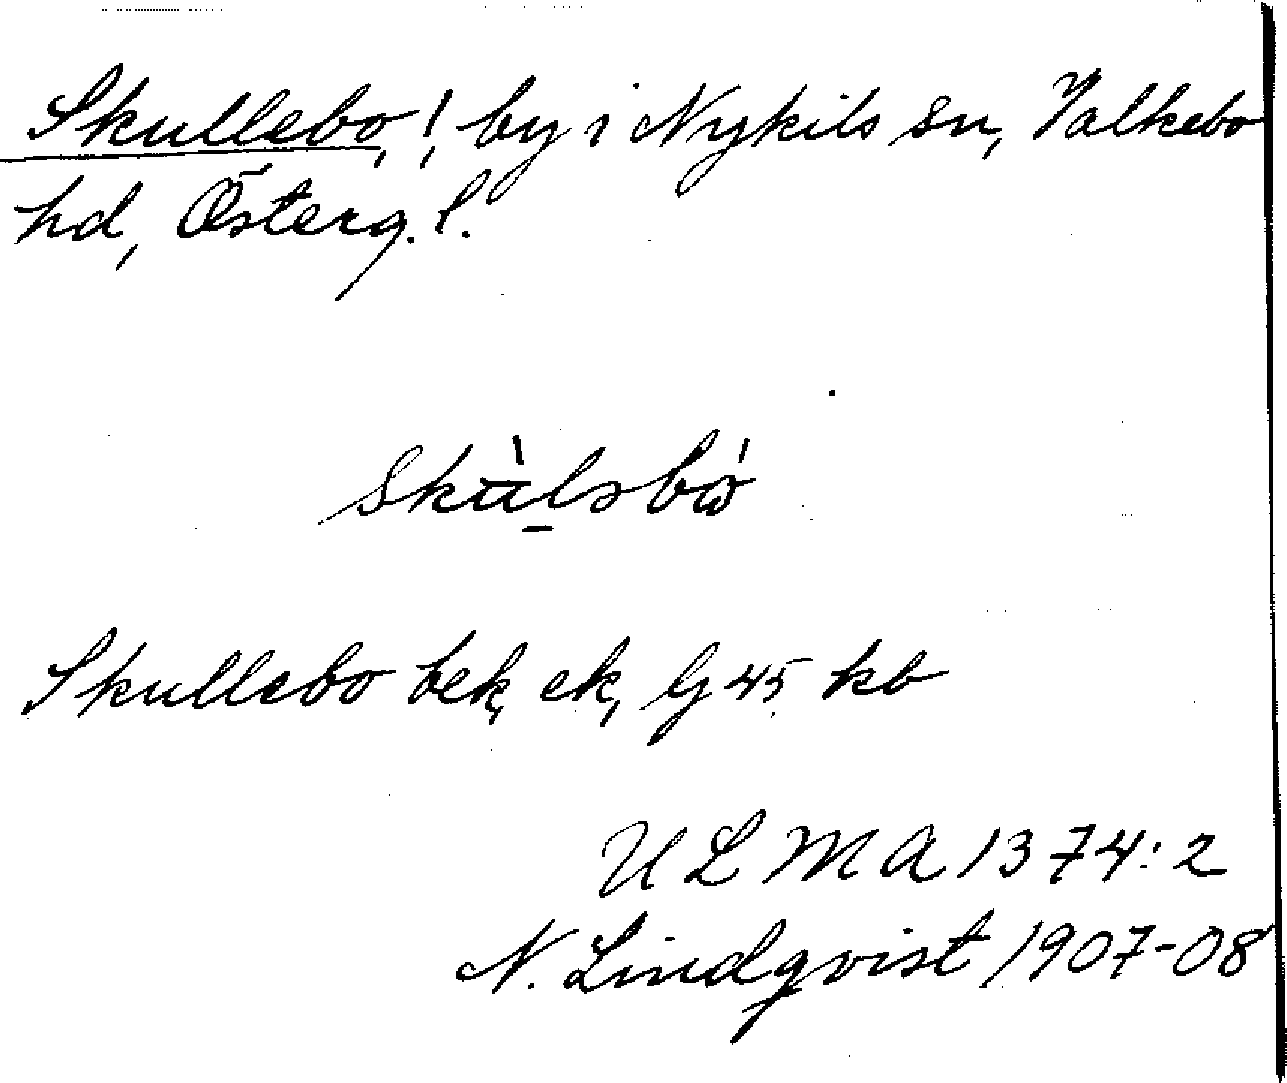 Skullebo,! by i Nykils sn, Valkebo
hd, Österg. l.
Skullebo bek, ek, G 45 kb
U L M A 1374:2
N. Lindqvist 1907-08